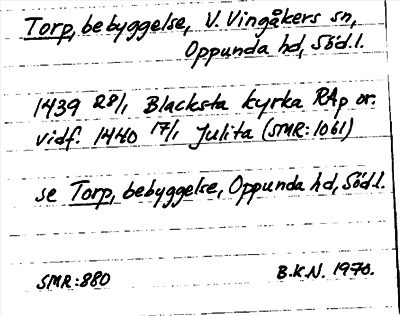 Torp, bebyggelse, V. Vingåkers sn,
Oppunda hd, Söd.l.
1439 28/1 Blacksta kyrka RAp or.
vidf. 1440 17/1 Julita (SMR:1061)
se Torp, bebyggelse, Oppunda hd, Söd.l.
SMR:880 B.K.N. 1970.